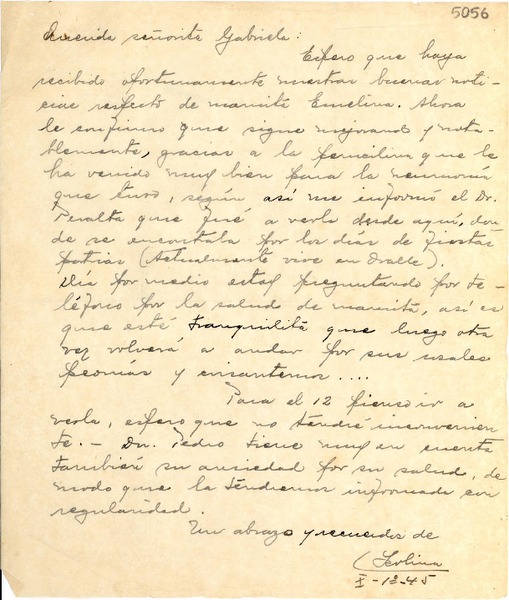 5056
Querida señorita Gabriela:
Espero que haya
recibido oportunamente nuestras buenas noti-
cias respecto de mamita Emelina. Ahora
le confirmo que sigue mejorando y nota-
blemente, gracias a la penicilina que le
ha venido muy bien para la neumonía
que tuvo, según así me informó el Dr.
Peralta que fué a verla desde aquí, don-
de se encontraba por los días de fiestas
patrias (Actualmente vive en Ovalle).
Día por medio estoy preguntando por te-
léfono por la salud de mamita, así es
que esté tranquilita que luego otra
vez volverá a andar por sus
y ....
Para el 12 pienso ir a
verla, espero que no tendré inconvenien
te.- Dn. Pedro tiene muy en cuenta
también su ansiedad por su salud, de
modo que la tendremos informada con
regularidad.
Un abrazo y recuerdos de
X-1º-45